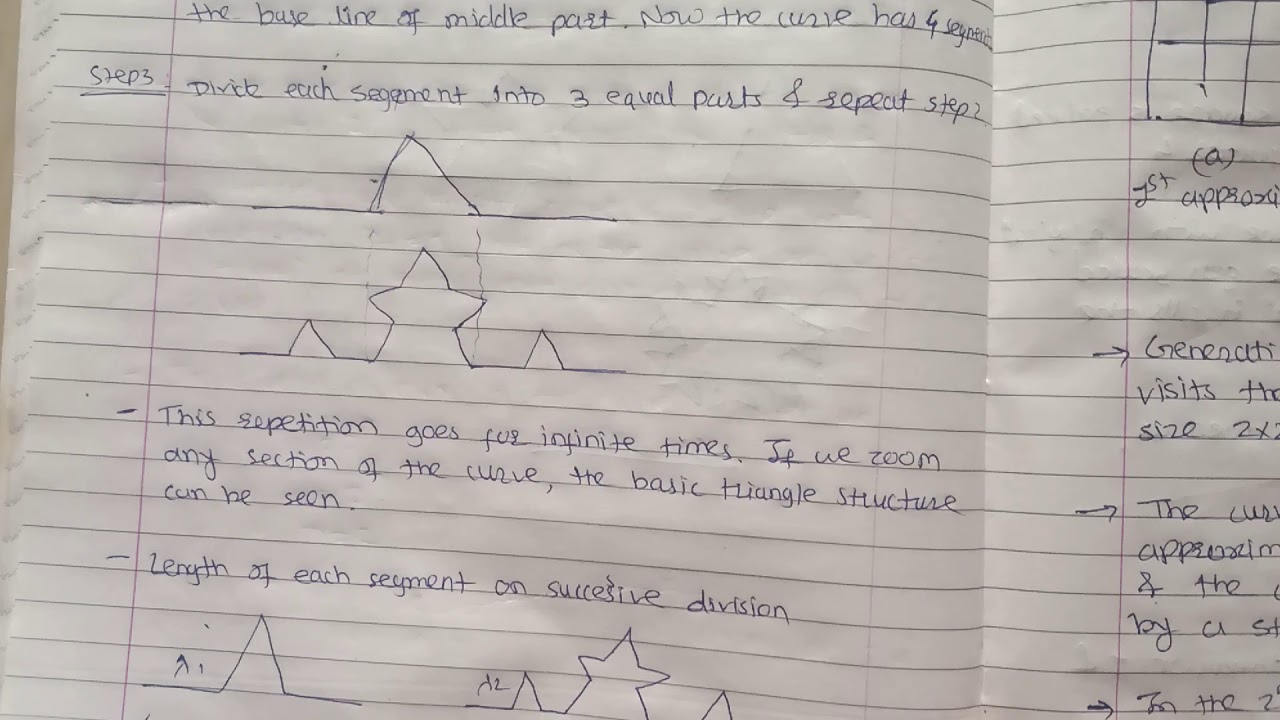 the base line of middle part. Now the curve has 4 segment
Step3 Divide each segement into 3 equal parts & repeat step2
- This repetition goes for infinite times. If we zoom
any section of the curve, the basic triangle structure
can be seen.
- Length of each segment on succesive division
λ1
λ2
(a)
1st approxi
→ Generati
visits the
size 2x2
→ The curv
approxim
& the
by a st
→ In the 2